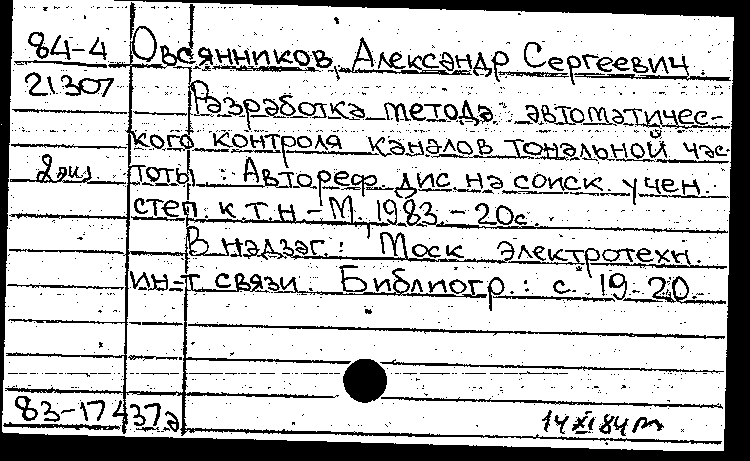 84-4 Овсянников, Александр Сергеевич.
21307 Разработка метода автоматичес-
кого контроля каналов тональной час-
2 экз тоты : Автореф. дис на соиск. учен.
степ. к.т.н. - М., 1983. - 20с.
В надзаг.: Моск электротехн.
ин-т связи. Библиогр.: с. 19-20
83-17437а 14 XI 84